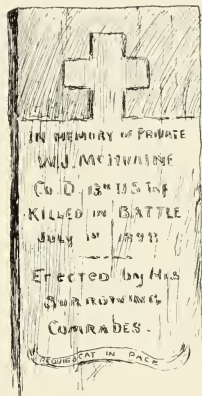 IN MEMORY OF PRIVATE
W.J. MCILVAINE
CO. D. 13TH U.S. INF
KILLED IN BATTLE
JULY 1ST 1898
Erected by His
SORROWING
COMRADES.
REQUIESCAT IN PACE